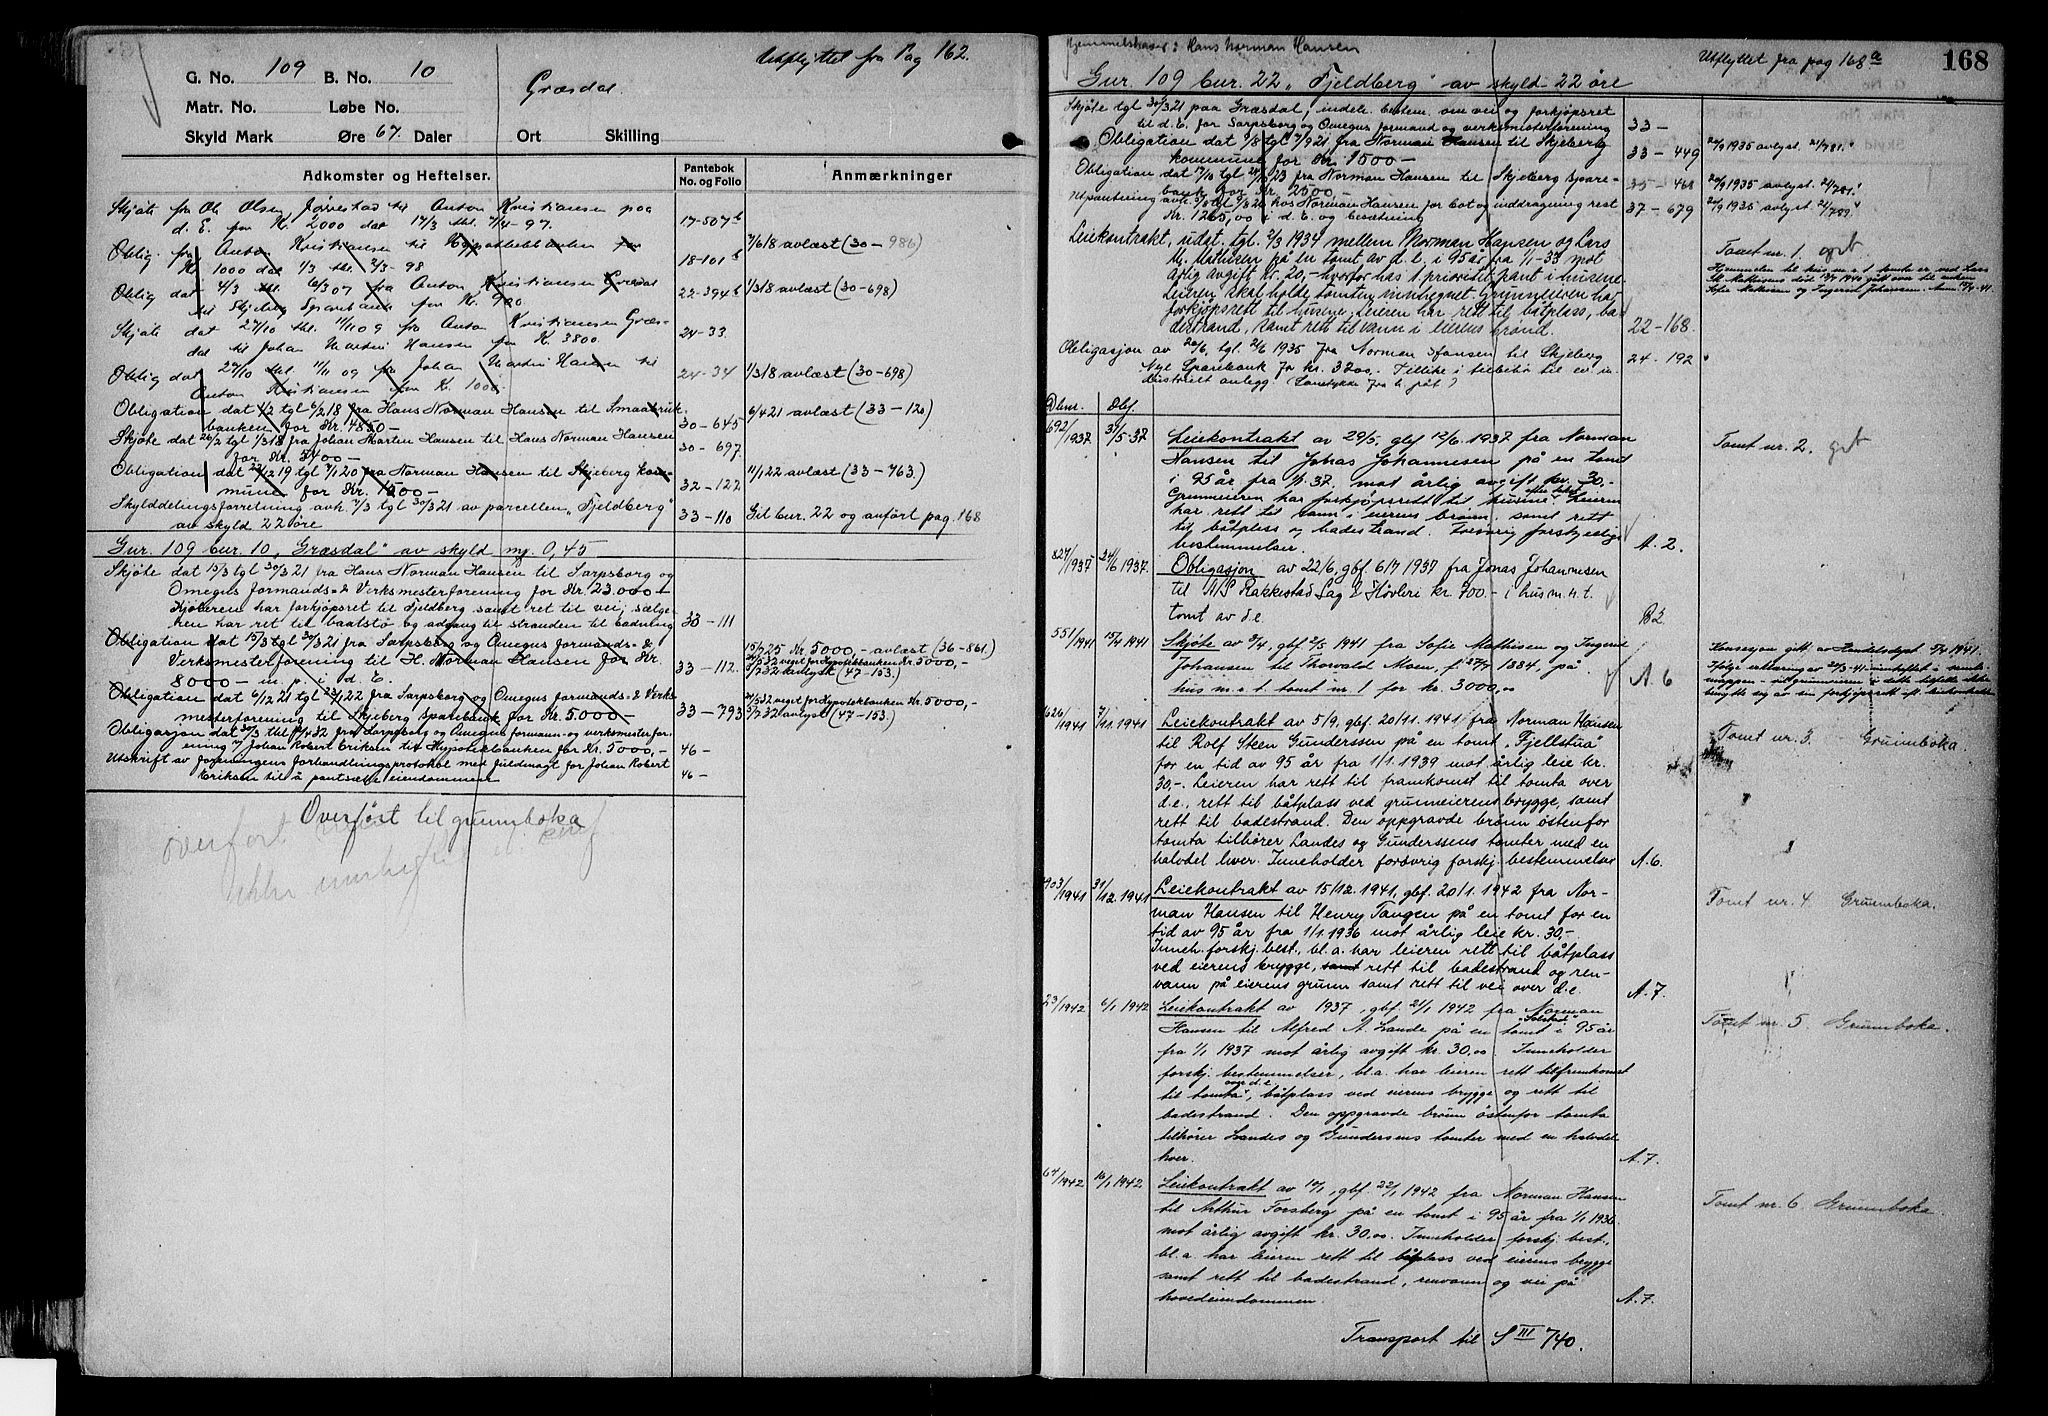 Utflyttet fra Pag 162.
G. No. 109 B. No. 10
Græsdal.
Matr. No. Løbe No.
Skyld Mark Øre 67. Daler Ort Skilling
Adkomster og Heftelser. Pantebok No. og Folio Anmærkninger
Skjøte fra Ole Olsen Jørvestad til Anton Kristiansen paa
d. E. for K. 2,000 dat 17/3 thl. 7/4-97. 17-507b
Oblig. fra Anton Kristiansen til Hypothekbanken for
K 1000 dat 1/3 thl. 2/3-98 18-101b 7/6 18 avlæst (30-986)
Oblig dat 4/3 thl. 6/3 07 fra Anton Kristiansen Græsdal
til Skjeberg Sparebank for K. 900 22-394b 1/3 18 avlæst (30-698)
Skjøte dat 27/10 thl. 11/11 09 fra Anton Kristiansen Græs-
dal til Johan Martin Hansen for K 3800. 24-33
Oblig dat 27/10 thl. 11/11 09 fra Johan Martin Hansen til
Anton Kristiansen for K. 1000. 24-34 1/3 18 avlæst (30-698)
Obligation dat 1/2 tgl 6/2 18 fra Hans Norman Hansen til Smaabruk-
banken for Kr. 4850- 30-645 6/4 21 avlæst (33-120)
Skjøte dat 26/2 tgl 1/3 18 fra Johan Martin Hansen til Hans Norman Hansen
for Kr. 5400- 30-697
Obligation dat 22/12 19 tgl 7/1 20 fra Norman Hansen til Skjeberg kom-
mune for Kr. 1500- 32-122 11/1 22 avlæst (33-763)
Skylddelingsforretning avh. 7/3 tgl 30/3 21 av parcellen "Fjeldberg"
av skyld 22 øre 33-110 Git bnr. 22 og anført pag. 168
Gnr. 109 bnr. 10 "Græsdal" av skyld mg. 0,45
Skjøte dat 15/3 tgl 30/3 21 fra Hans Norman Hansen til Sarpsborg og
Omegns Formands- & Verksmesterforening for Kr. 23.000-
Kjøberen har forkjøpsret til Fjeldberg samt ret til vei; sælge-
ren har ret til baatstø og adgang til stranden til badning 33-111
Obligation dat 15/3 tgl 30/3 21 fra Sarpsborg og Omegns Formands- &
Verksmesterforening til H. Norman Hansen for Kr.
8000- m. p. i d. E. 33-112.
15/7 25 Kr. 5000,- avlæst (36-861.)
29/4 32 veget for Hypotekbanken Kr. 5000,-
5/7 32 avlyst (47-153.)
Obligation dat 6/12 21 tgl 23/1 22 fra Sarpsborg og Omegns formands- & Verks
mesterforening til Skjeberg Sparebank for Kr. 5.000- 33-793
29/4 32 veget for Hypotekbanken Kr. 5000,-
5/7 32 avlyst (47-153.)
Obligasjon dat 30/3 thl 14/4 32 fra Sarpsborg og Omegns formann- og verksmesterfor-
ening v/ Johan Robert Eriksen til Hypotekbanken for Kr. 5000,- 46-
Utskrift av foreningens forhandlingsprotokol med fuldmagt for Johan Robert
Eriksen til å pantsætte eiendommene 46-
Overført til grunnboka
overført
ikke
Hjemmelshaver: Hans Norman Hansen
Utflyttet fra pag 168a 168
Gnr. 109 bnr. 22 "Fjeldberg" av skyld 22 øre
Skjøte tgl 30/3 21 paa Græsdal, indeh. bestem. om vei og forkjøpsret
til d. E. for Sarpsborg og Omegns formand og verksmesterforening 33-
Obligation dat 9/8 tgl 7/9 21 fra Norman Hansen til Skjeberg
kommune for Kr 1500- 33-449 20/9 1935 avlyst. 21/781.
Obligation dat 17/10 tgl 24/10 23 fra Norman Hansen til Skjeberg Spare-
bank for Kr. 2500- 35-468 20/9 1935 avlyst. 21/781.
Utpantning avh. 3/8 tgl 9/8 26 hos Norman Hansen for bot og inddragning rest
Kr. 1265,00 i d. E. og besetning 37-679 20/9 1935 avlyst 21/799.
Leiekontrakt, udat. tgl. 2/3 1934 mellem Norman Hansen og Lars
M. Mathisen på en tomt av d. e. i 95 år fra 1/1-33 mot
årlig avgift kr. 20,- hvorfor has 1 prioritets pant i husene.
Leieren skal holde tomten innhegnet. Grunneieren har
forkjøpsrett til husene. Leieren har rett til båtplass, ba-
destrand, samt rett til vann i eierens grond. 22-168.
Tomt nr. 1. grb
Hjemmelen til hus m. r. t. tomta er ved Lars
M. Mathisens død
Sofie Mathisen og Ingerid Johansen.
Obligasjon av 20/6, tgl. 21/6 1935 fra Norman Hansen til Skjeberg
Nye Sparebank for kr. 3200,-. Tillike i tilbehør til ev. in-
dustrielt anlegg. 24-192
Dbnr. Dbf.
692/1937 31/5-37 Leiekontrakt av 29/5, gbf 12/6. 1937 fra Norman
Hansen til Johas Johannesen på en tomt
i 95 år fra 1/1.37. mot årlig avgift kr. 30,-
Grunneieren har forkjøpsrett til husene efter takst. Leieren
har rett til vann i eierens brønn samt rett
til båtplass og badestrand. Forøvrig forskjellige
bestemmelser. A. 2. Tomt nr. 2. grb
827/1937 24/6 1937. Obligasjon av 22/6, gbf. 6/7 1937 fra Jonas Johannesen
til A/S Rakkestad Sag & Høvleri kr 700.- i hus m. r. t.
tomt av d. e. B2
551/1941 15/4 1941 Skjøte av 9/4, gbf 2/5 1941 fra Sofie Mathisen og Ingerid
Johansen til Thorvald Moen, f. 27/7 1884, på
hus m. r. t. tomt nr. 1 for kr. 3000,00 A. 6
Konsesjon gitt av Landbruksdept.
1626/1941 7/11.1941 Leiekontrakt av 5/9, gbf. 20/11.1941 fra Norman Hansen
til Rolf Steen Gunderssen på en tomt "Fjellstua"
for en tid av 95 år fra 1/1.1939 mot årlig leie kr.
30,-. Leieren har rett til framkomst til tomta over
d. e., rett til båtplass ved grunneierens brygge, samt
rett til badestrand. Den oppgravde brønn østenfor
tomta tilhører Landes og Gunderssens tomter med en
halvdel hver. Inneholder forøvrig forskj. bestemmelser A. 6.
Tomt nr. 3. Grunnboka.
1903/1941 31/12.1941 Leiekontrakt av 15/12.1941, gbf. 20/1.1942 fra Nor-
man Hansen til Henry Tangen på en tomt for en
tid av 95 år fra 1/1.1936 mot årlig leie kr. 30,-
Inneh. forskj. best., bl. a. har leieren rett til båtplass
ved eierens brygge, samt rett til badestrand og ren-
vann på eierens grunn samt rett til vei over d. e. A. 7.
Tomt nr. 4 Grunnboka.
23/1942 6/1 1942 Leiekontrakt av 1937, gbf. 21/1 1942 fra Norman
Hansen til Alfred M. Lande på en tomt "Solstua" i 95 år
fra 1/1 1937 mot årlig avgift kr. 30,00 Inneholder
forskj. bestemmelser, bl. a. har leieren rett til fremkomst
til tomta over d. e., båtplass ved eierens brygge og rett til
badestrand. Den oppgravde brønn østenfor tomta
tilhører Landes og Gundersens tomter med en halvdel
hver. A. 7. Tomt nr. 5. Grunnboka.
64/1942 16/1 1942 Leiekontrakt av 14/1, gbf. 22/1 1942 fra Norman Hansen
til Arthur Forsberg på en tomt i 95 år fra 1/1 1936
mot årlig avgift kr. 30,00. Inneholder forskj. best.,
bl. a. har leieren rett til båtplass ved eierens brygge
samt rett til badestrand, renvann og vei på
hovedeiendommen. A. 7. Tomt nr. 6. Grunnboka.
Transport til S III 740.